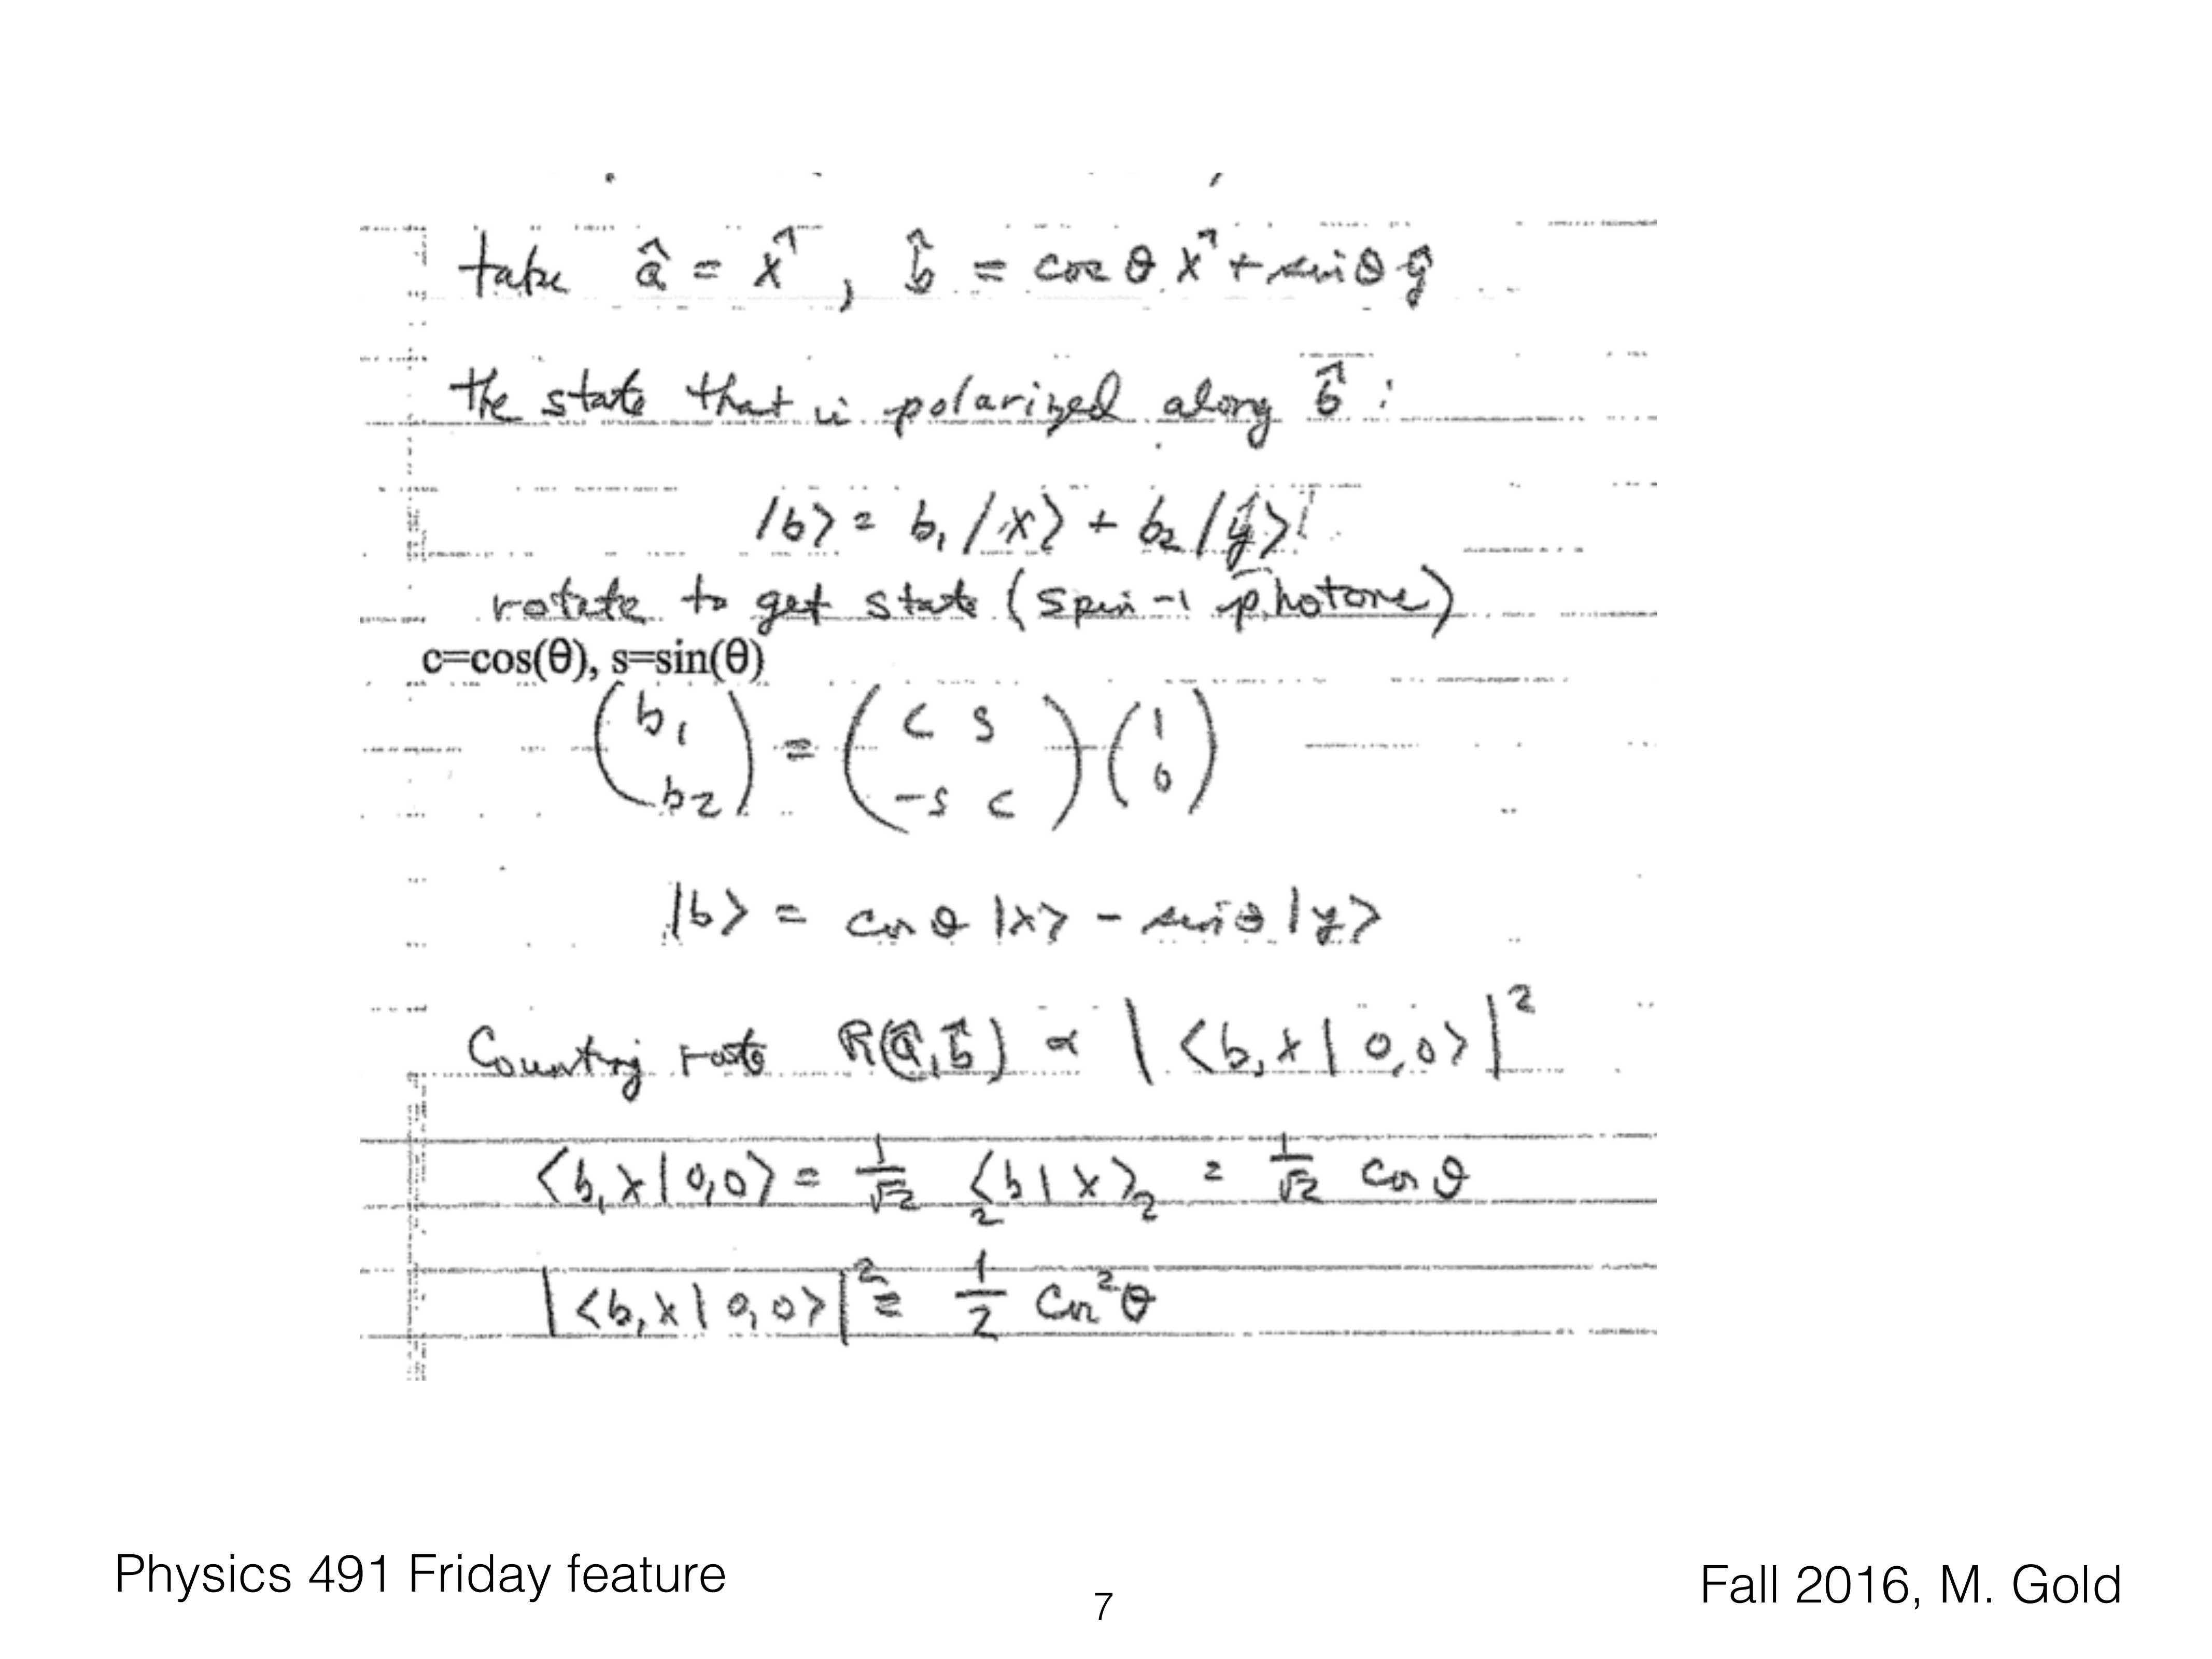 take â = x̂ , b̂ = cos θ x̂ + sin θ ŷ
the state that is polarized along b̂ :
|b> = b₁ |x> + b₂ |y>
rotate to get state (spin-1 photons)
c=cos(θ), s=sin(θ)
(b₁ b₂) = (c s -s c) (1 0)
|b> = cos θ |x> - sin θ |y>
Counting rate R(â, b̂) ∝ | <b, x | 0,0> |²
<b, x | 0,0> = 1/√2 ₂<b | x>₂ = 1/√2 cos θ
| <b, x | 0,0> |² = 1/2 cos² θ
Physics 491 Friday feature
7
Fall 2016, M. Gold